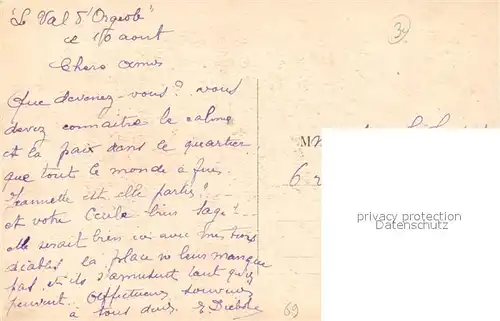 "Le Val d'Orgeob"
ce 10 aout
34
Chers amis
Que devenez-vous? vous
devez connaitre le calme
et la paix dans le quartier
que tout le monde a fui.
Jeannette est elle partie?
et votre Cécile bien sage?
elle serait bien ici avec mes trois
diables la place ne leur manque
pas et ils s'amusent tant qu'ils
peuvent. Affectueux souvenirs
à tous deux.
M
6
privacy protection
Datenschutz
69